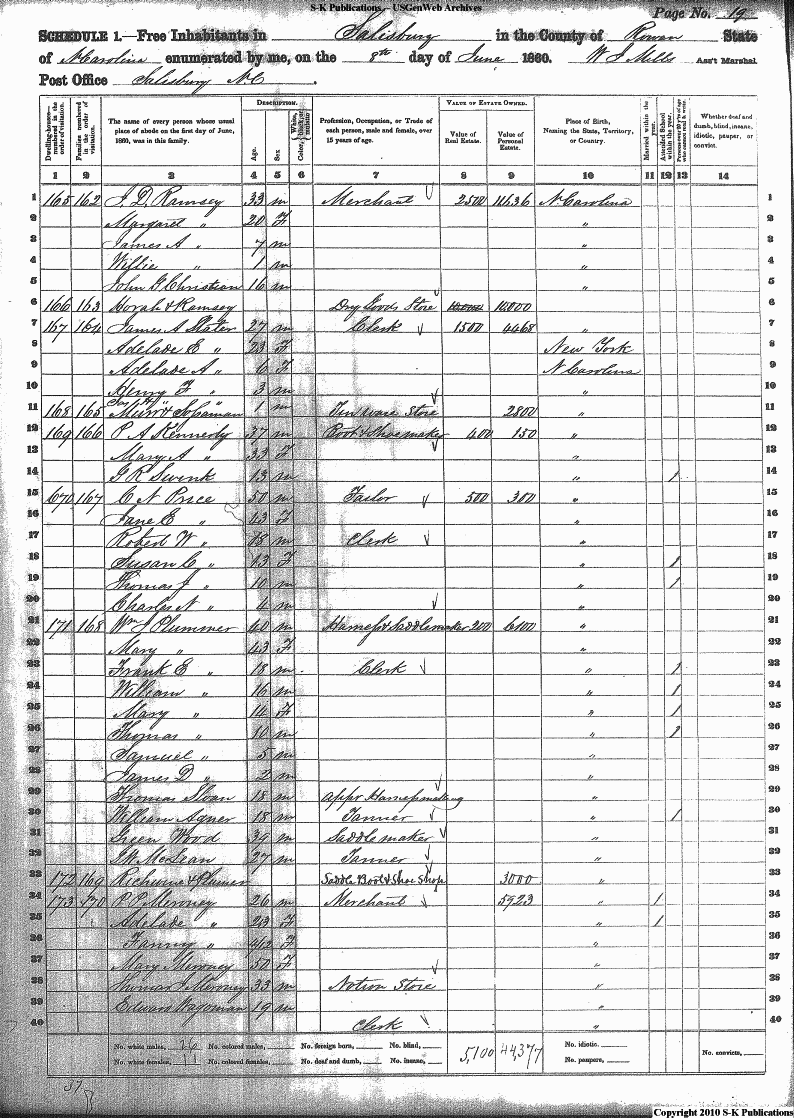 S-K Publications – USGenWeb Archives
Page No. 19
SCHEDULE 1.—Free Inhabitants in Salisbury in the County of Rowan State
of N Carolina enumerated by me, on the 8th day of June 1860. W J Mills Ass't Marshal.
Post Office Salisbury NC.
DESCRIPTION. VALUE OF ESTATE OWNED.
Dwelling-houses—numbered in the order of visitation. Families numbered in the order of visitation. The name of every person whose usual place of abode on the first day of June, 1860, was in this family. Age. Sex Color, White, black, or mulatto Profession, Occupation, or Trade of each person, male and female, over 15 years of age. Value of Real Estate. Value of Personal Estate. Place of Birth, Naming the State, Territory, or Country. Married within the year. Attended School within the year. Whether deaf and dumb, blind, insane, idiotic, pauper, or convict.
1 2 3 4 5 6 7 8 9 10 11 12 13 14
1 165 162 J. D. Ramsey 33 m Merchant 2500 N Carolina 1
2 Margaret " 20 F " 2
3 James A " 7 m " 3
4 Willie " 1 m " 4
5 John G Christian 16 m " 5
6 166 163 & Ramsey Dry Goods Store 10,000 10,000 6
7 167 164 James A Slater 27 m Clerk 1500 4468 " 7
8 Adelade E " 23 F New York 8
9 Adelade A " 6 F N Carolina 9
10 Henry F " 3 m " 10
11 168 165 1 m Tin ware Store 2800 " 11
12 169 166 P A Kennerly 37 m Boot & Shoemaker 400 150 " 12
13 Mary A " 33 F " 13
14 G R Swink 13 m " 1 14
15 670 167 C N Price 50 m Tailor 500 300 " 15
16 Jane E " 43 F " 16
17 Robert W " 18 m Clerk " 17
18 Susan C " 13 F " 1 18
19 Thomas J " 10 m " 1 19
20 Charles N " 4 m " 20
21 171 168 Wm J Plummer 40 m Harness & Saddlemaker 200 6100 " 21
22 Mary " 43 F " 22
23 Frank E " 18 m Clerk " 1 23
24 William " 16 m " 1 24
25 Mary " 14 F " 1 25
26 Thomas " 10 m " 1 26
27 Samuel " 5 m " 27
28 James D " 2 m " 28
29 Thomas Sloan 18 m Appr Harness making " 29
30 William Agner 18 m Tanner " 1 30
31 Green Wood 39 m Saddle maker " 31
32 McLean 27 m Tanner " 32
33 172 169 Saddle Boot & Shoe Shop 3000 " 33
34 173 170 P P Meroney 26 m Merchant 5923 " 1 34
35 Adelade " 23 F " 1 35
36 Fanny " 4/12 F " 36
37 Mary Meroney 50 F " 37
38 Thomas J Meroney 33 m Notion Store " 38
39 Edward Wagoman 19 m " 39
40 Clerk " 40
No. white males, 26 No. colored males, No. foreign born, No. blind, 5,100 44,377 No. idiotic.
No. white females, 11 No. colored females, No. deaf and dumb, No. insane, No. paupers, No. convicts,
37
Copyright 2010 S-K Publications